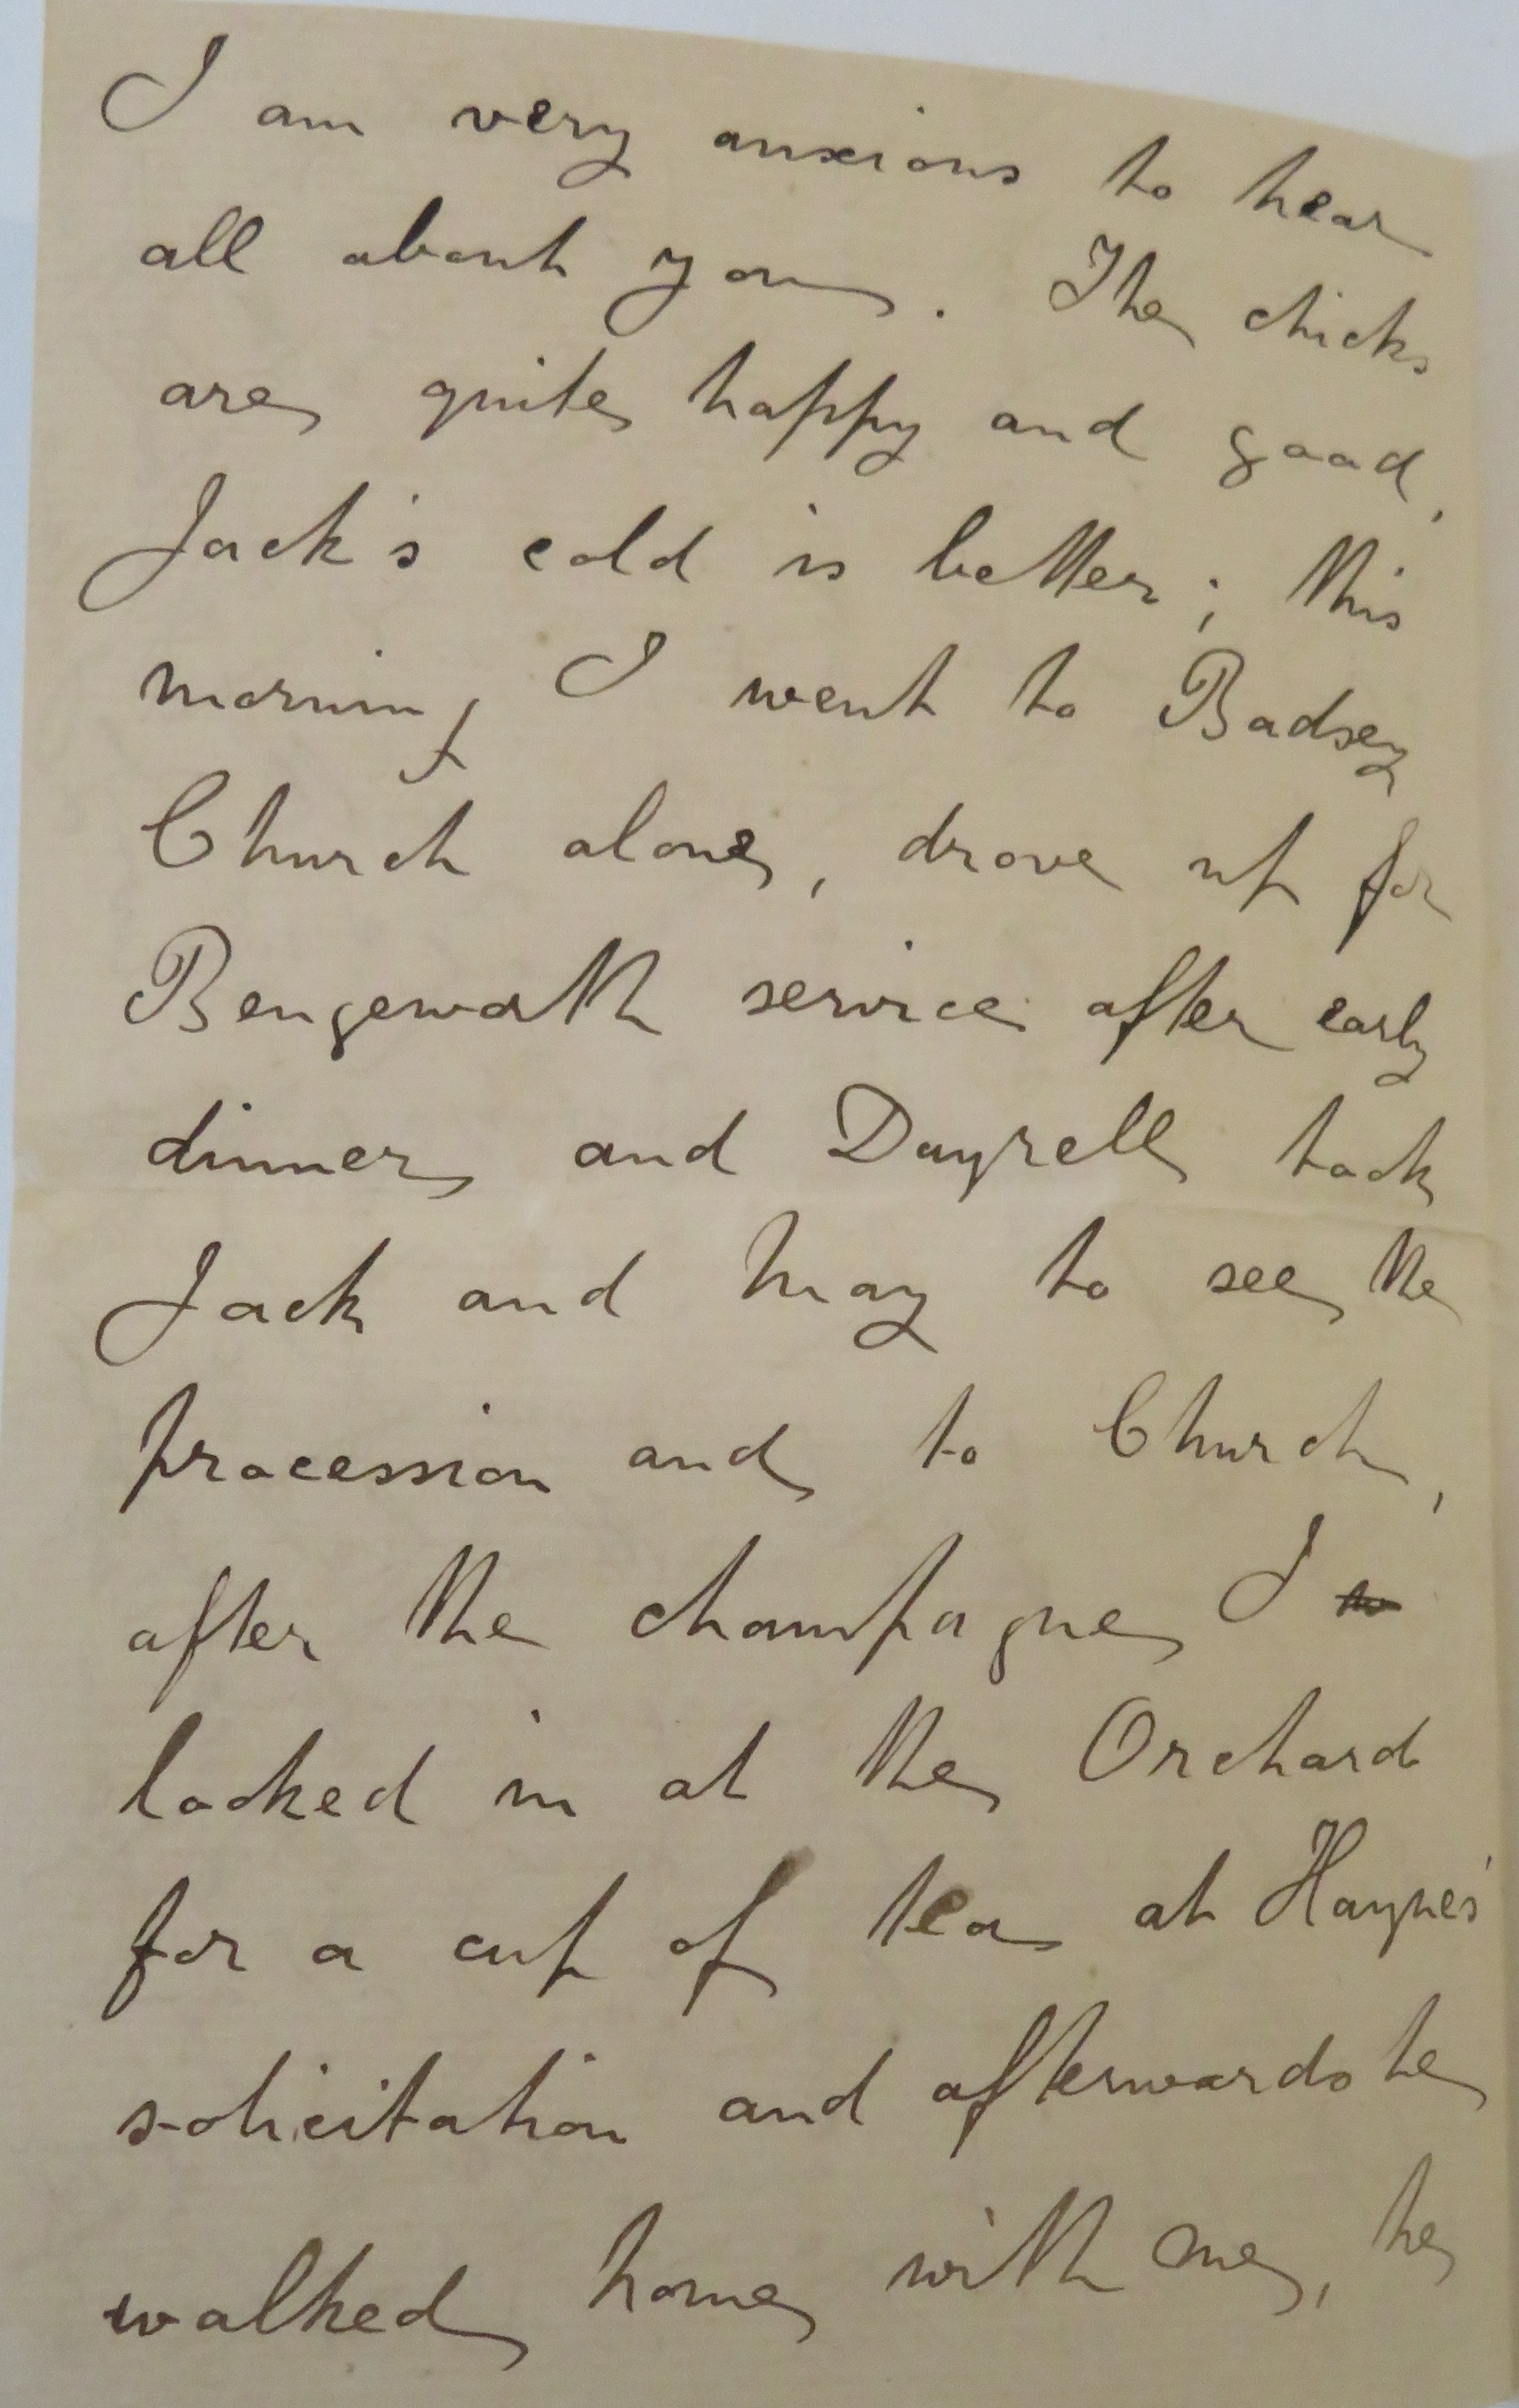 I am very anxious to hear
all about you. The chicks
are quite happy and good,
Jack's cold is better; this
morning I went to Badsey
Church alone, drove up for
Bengeworth service after early
dinner and Dayrell took
Jack and May to see the
procession and to Church,
after the champagne I
looked in at the Orchard
for a cup of tea at Haynes'
solicitation and afterwards he
walked home with me, he